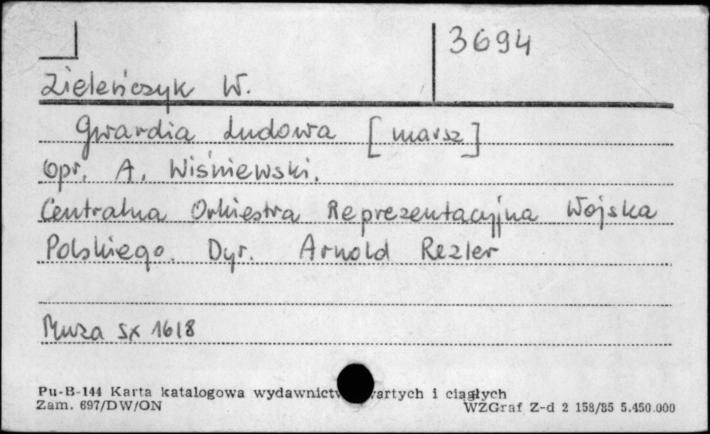 3694
Zieleńczyk W.
Gwardia Ludowa [marsz]
Opr. A. Wiśniewski.
Centralna Orkiestra Reprezentacyjna Wojska
Polskiego. Dyr. Arnold Rezler
Muza SX 1618
Pu-B-144 Karta katalogowa wydawnictw zwartych i ciągłych
Zam. 697/DW/ON WZGraf Z-d 2 158/85 5.450.000